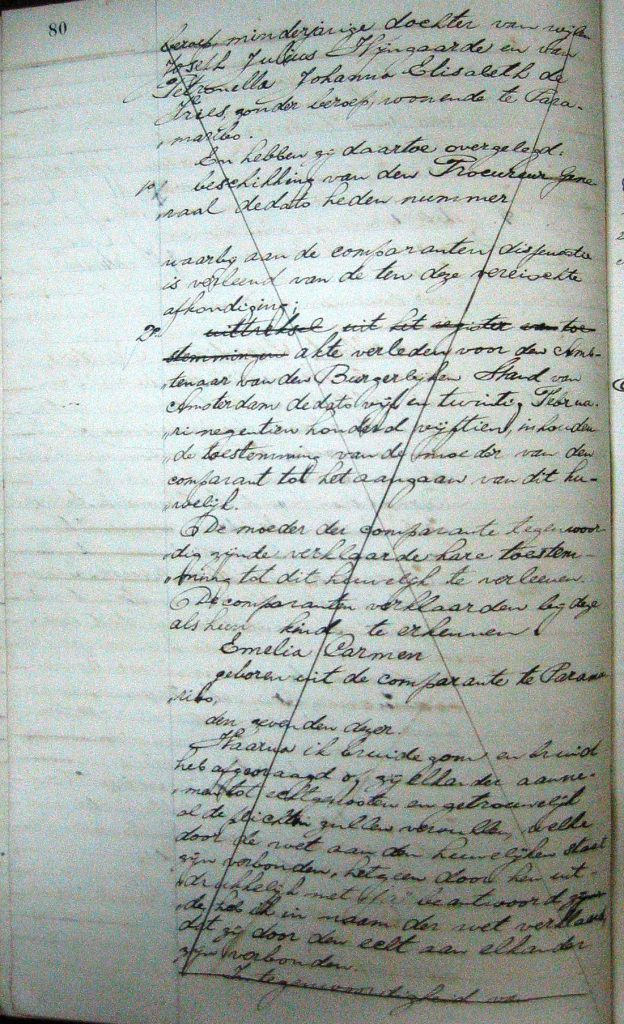 80
beroep, minderjarige dochter van wijlen
Joseph Julius Wijngaarde en van
Petronella Johanna Elisabeth de
Vries, zonder beroep, wonende te Para-
maribo.
En hebben zij daartoe overgelegd:
1º beschikking van den Procureur Gene
raal dedato heden nummer
waarbij aan de comparanten dispensatie
is verleend van de ten deze vereischte
afkondiging;
2º uittreksel uit het register van toe
stemmingen akte verleden voor den Amb-
tenaar van den Burgerlijken Stand van
Amsterdam dedato vijf en twintig Februa-
ri negentien honderd vijftien, inhouden
de toestemming van de moeder van den
comparant tot het aangaan van dit hu-
welijk.
De moeder der comparante tegenwoor-
dig zijnde verklaarde hare toestem-
ming tot dit huwelijk te verleenen.
De comparanten verklaarden bij deze
als hun kind te erkennen
Emelia Carmen
geboren uit de comparante te Parama
ribo,
den zevenden dezer.
Waarna ik bruidegom en bruid
heb afgevraagd of zij elkander aanne-
men tot echtgenooten en getrouwelijk
al de plichten zullen vervullen, welke
door de wet aan den huwelijken staat
zijn verbonden, hetgeen door hen uit-
drukkelijk met "Ja" beantwoord zijn
de heb ik in naam der wet verklaard,
dat zij door den echt aan elkander
zijn verbonden.
In tegenwoordigheid van